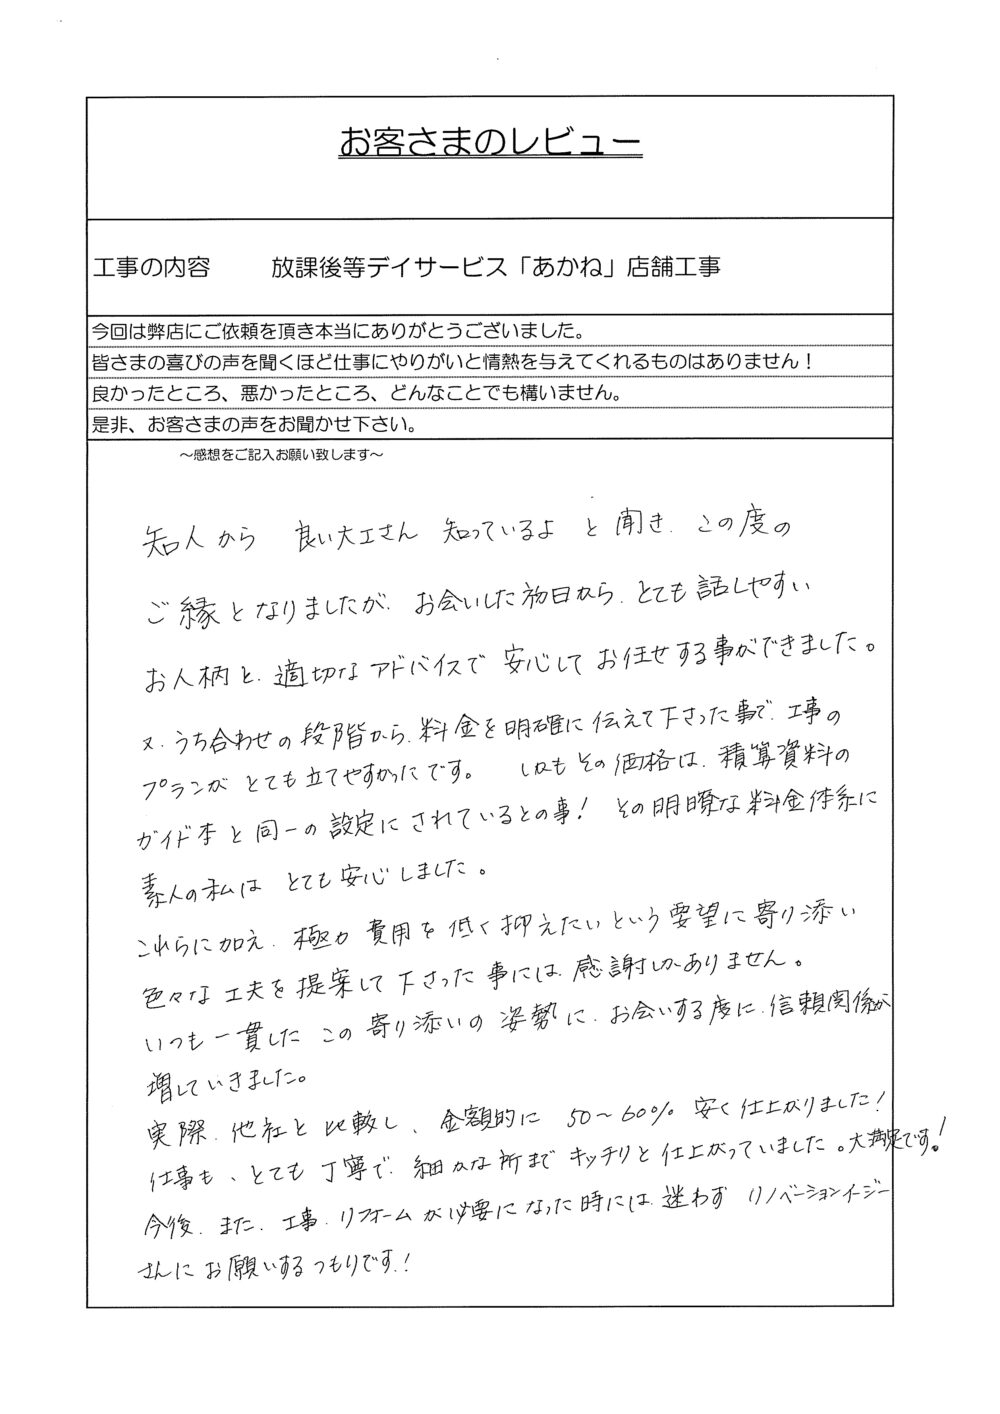 お客さまのレビュー
工事の内容 放課後等デイサービス「あかね」店舗工事
今回は弊店にご依頼を頂き本当にありがとうございました。
皆さまの喜びの声を聞くほど仕事にやりがいと情熱を与えてくれるものはありません！
良かったところ、悪かったところ、どんなことでも構いません。
是非、お客さまの声をお聞かせ下さい。
～感想をご記入お願い致します～
知人から 良い大工さん 知っているよ と聞き、この度の
ご縁となりましたが、お会いした初日から、とても話しやすい
お人柄と、適切なアドバイスで 安心して お任せする事ができました。
又、うち合わせの段階から、料金を明確に伝えて下さった事で、工事の
プランが とても立てやすかったです。 しかもその価格は、積算資料の
ガイド本と同一の設定にされているとの事！ その明瞭な料金体系に
素人の私は とても安心しました。
これらに加え、極力 費用を低く抑えたいという要望に寄り添い
色々な工夫を提案して下さった事には、感謝しかありません。
いつも一貫した この寄り添いの姿勢に、お会いする度に、信頼関係が
増していきました。
実際、他社と比較し、金額的に 50～60% 安く仕上がりました！
仕事も、とても丁寧で、細かな所まで キッチリと仕上がっていました。大満足です！
今後、また、工事、リフォームが必要になった時には、迷わず リノベーションイージー
さんにお願いするつもりです！